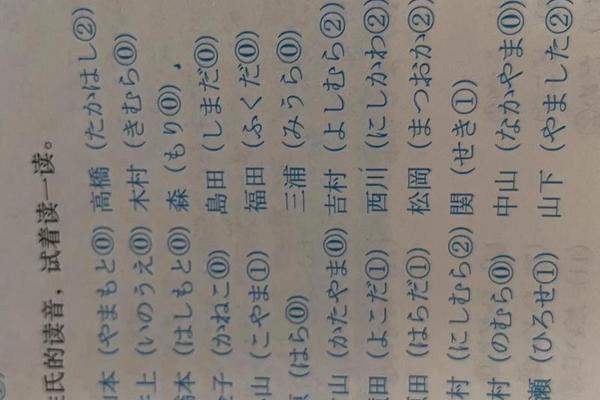 氏的读音，试着读一读。
山本（やまもと⓪）高橋（たかはし②）
井上（いのうえ⓪）木村（きむら⓪）
橋本（はしもと⓪）森（もり⓪）
子（かねこ⓪）島田（しまだ⓪）
山（こやま①）福田（ふくだ⓪）
（はら⓪）三浦（みうら⓪）
山（かたやま⓪）吉村（よしむら②）
田（よこだ①）西川（にしかわ②）
原田（はらだ①）松岡（まつおか②）
村（にしむら②）関（せき①）
村（のむら⓪）中山（なかやま⓪）
瀬（ひろせ①）山下（やました②）